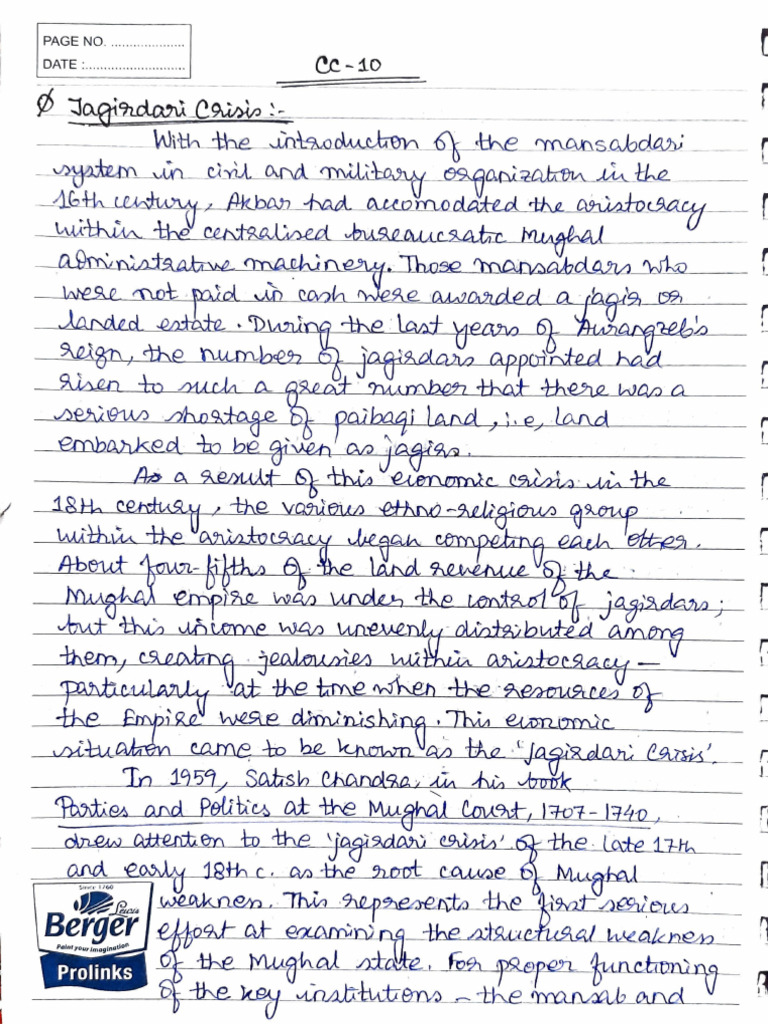 PAGE NO. ....................
DATE :...........................
CC-10
Jagirdari Crisis :-
With the introduction of the mansabdari
system in civil and military organization in the
16th century, Akbar had accomodated the aristocracy
within the centralised bureaucratic Mughal
administrative machinery. Those mansabdars who
were not paid in cash were awarded a jagir or
landed estate. During the last years of Aurangzeb's
reign, the number of jagirdars appointed had
risen to such a great number that there was a
serious shortage of paibaqi land, i.e, land
embarked to be given as jagirs.
As a result of this economic crisis in the
18th century, the various ethno-religious group
within the aristocracy began competing each other.
About four-fifths of the land revenue of the
Mughal empire was under the control of jagirdars;
but this income was unevenly distributed among
them, creating jealousies within aristocracy –
particularly at the time when the resources of
the Empire were diminishing. This economic
situation came to be known as the 'Jagirdari Crisis'.
In 1959, Satish Chandra, in his book
Parties and Politics at the Mughal Court, 1707-1740,
drew attention to the 'jagirdari crisis' of the late 17th
and early 18th c. as the root cause of Mughal
weakness. This represents the first serious
effort at examining the structural weakness
of the Mughal state. For proper functioning
of the key institutions – the mansab and
Since 1760
Lewis
Berger
Paint your imagination
Prolinks